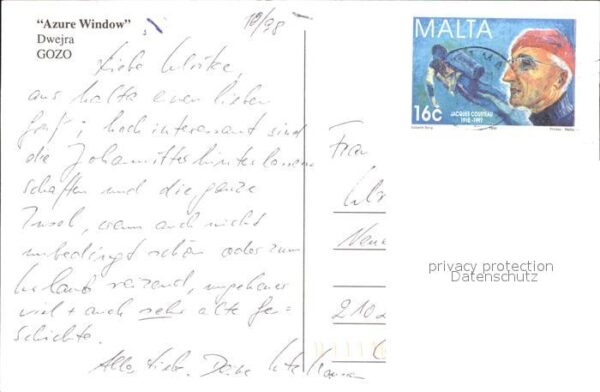 "Azure Window"
Dwejra
GOZO
10/98
Liebe Ulrike,
aus Malta einen lieben
Gruß; hoch interessant sind
die Johanniterhinterlassen-
schaften und die ganze
Insel, wenn auch nicht
unbedingt schön oder zum
Urlaub reizend, ungeheuer
viel + auch sehr alte Ge-
schichte.
Alles Liebe. Deine
MALTA
16c
JACQUES COUSTEAU
1910-1997
Frau
Ulr
210
privacy protection
Datenschutz